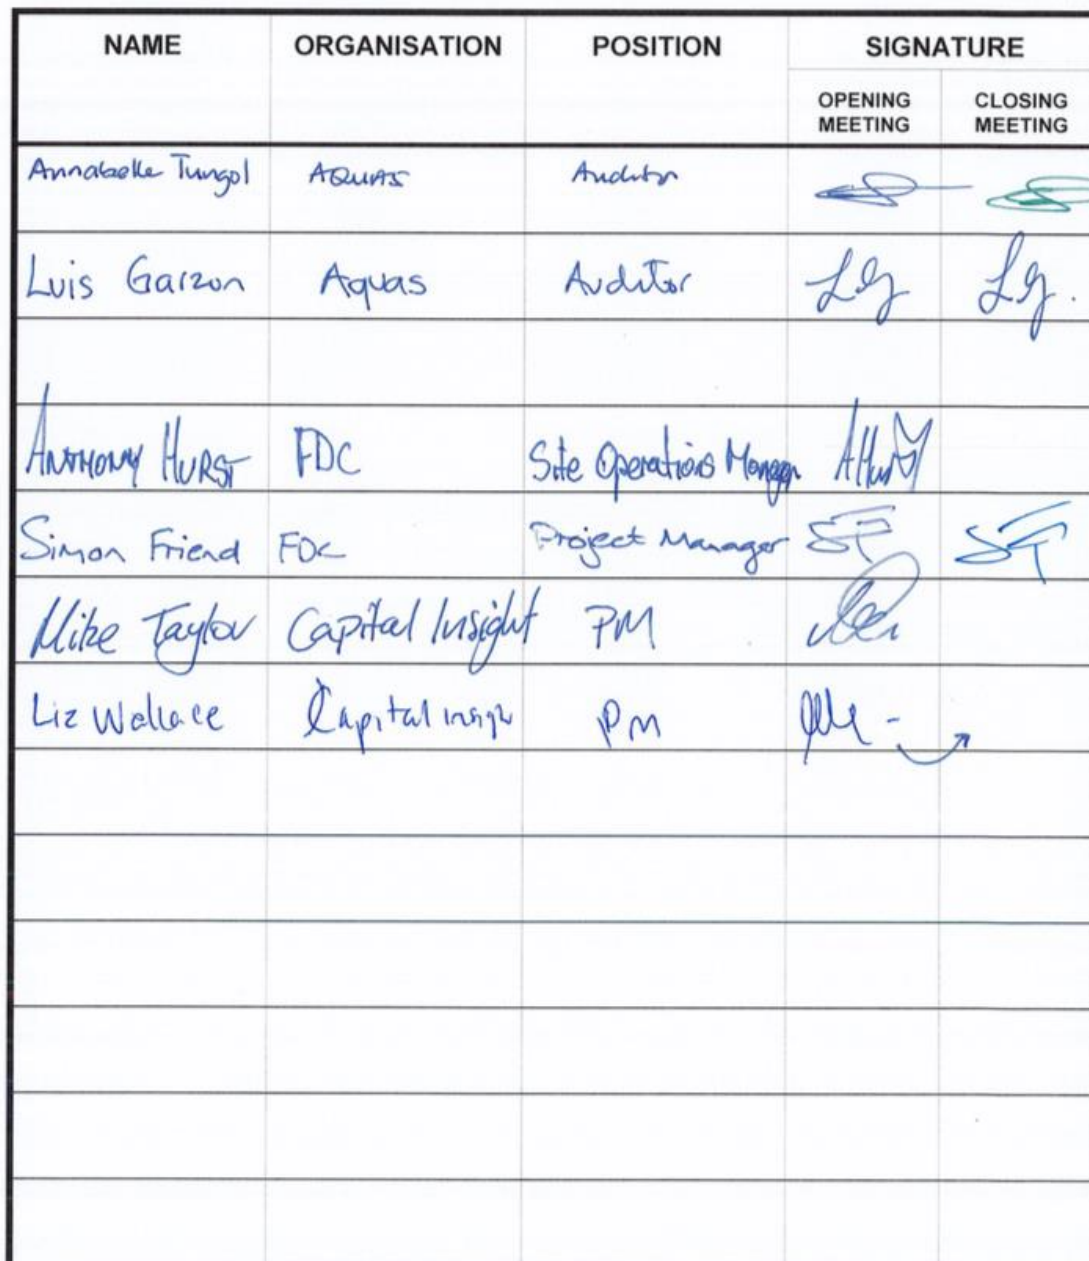 NAME ORGANISATION POSITION SIGNATURE
OPENING MEETING CLOSING MEETING
Annabelle Tungol AQUAS Auditor
Luis Garzon Aquas Auditor LG LG.
ANTHONY HURST FDC Site Operations Manager AHurst
Simon Friend FDC Project Manager SF SF
Mike Taylor Capital Insight PM
Liz Wallace Capital insight PM